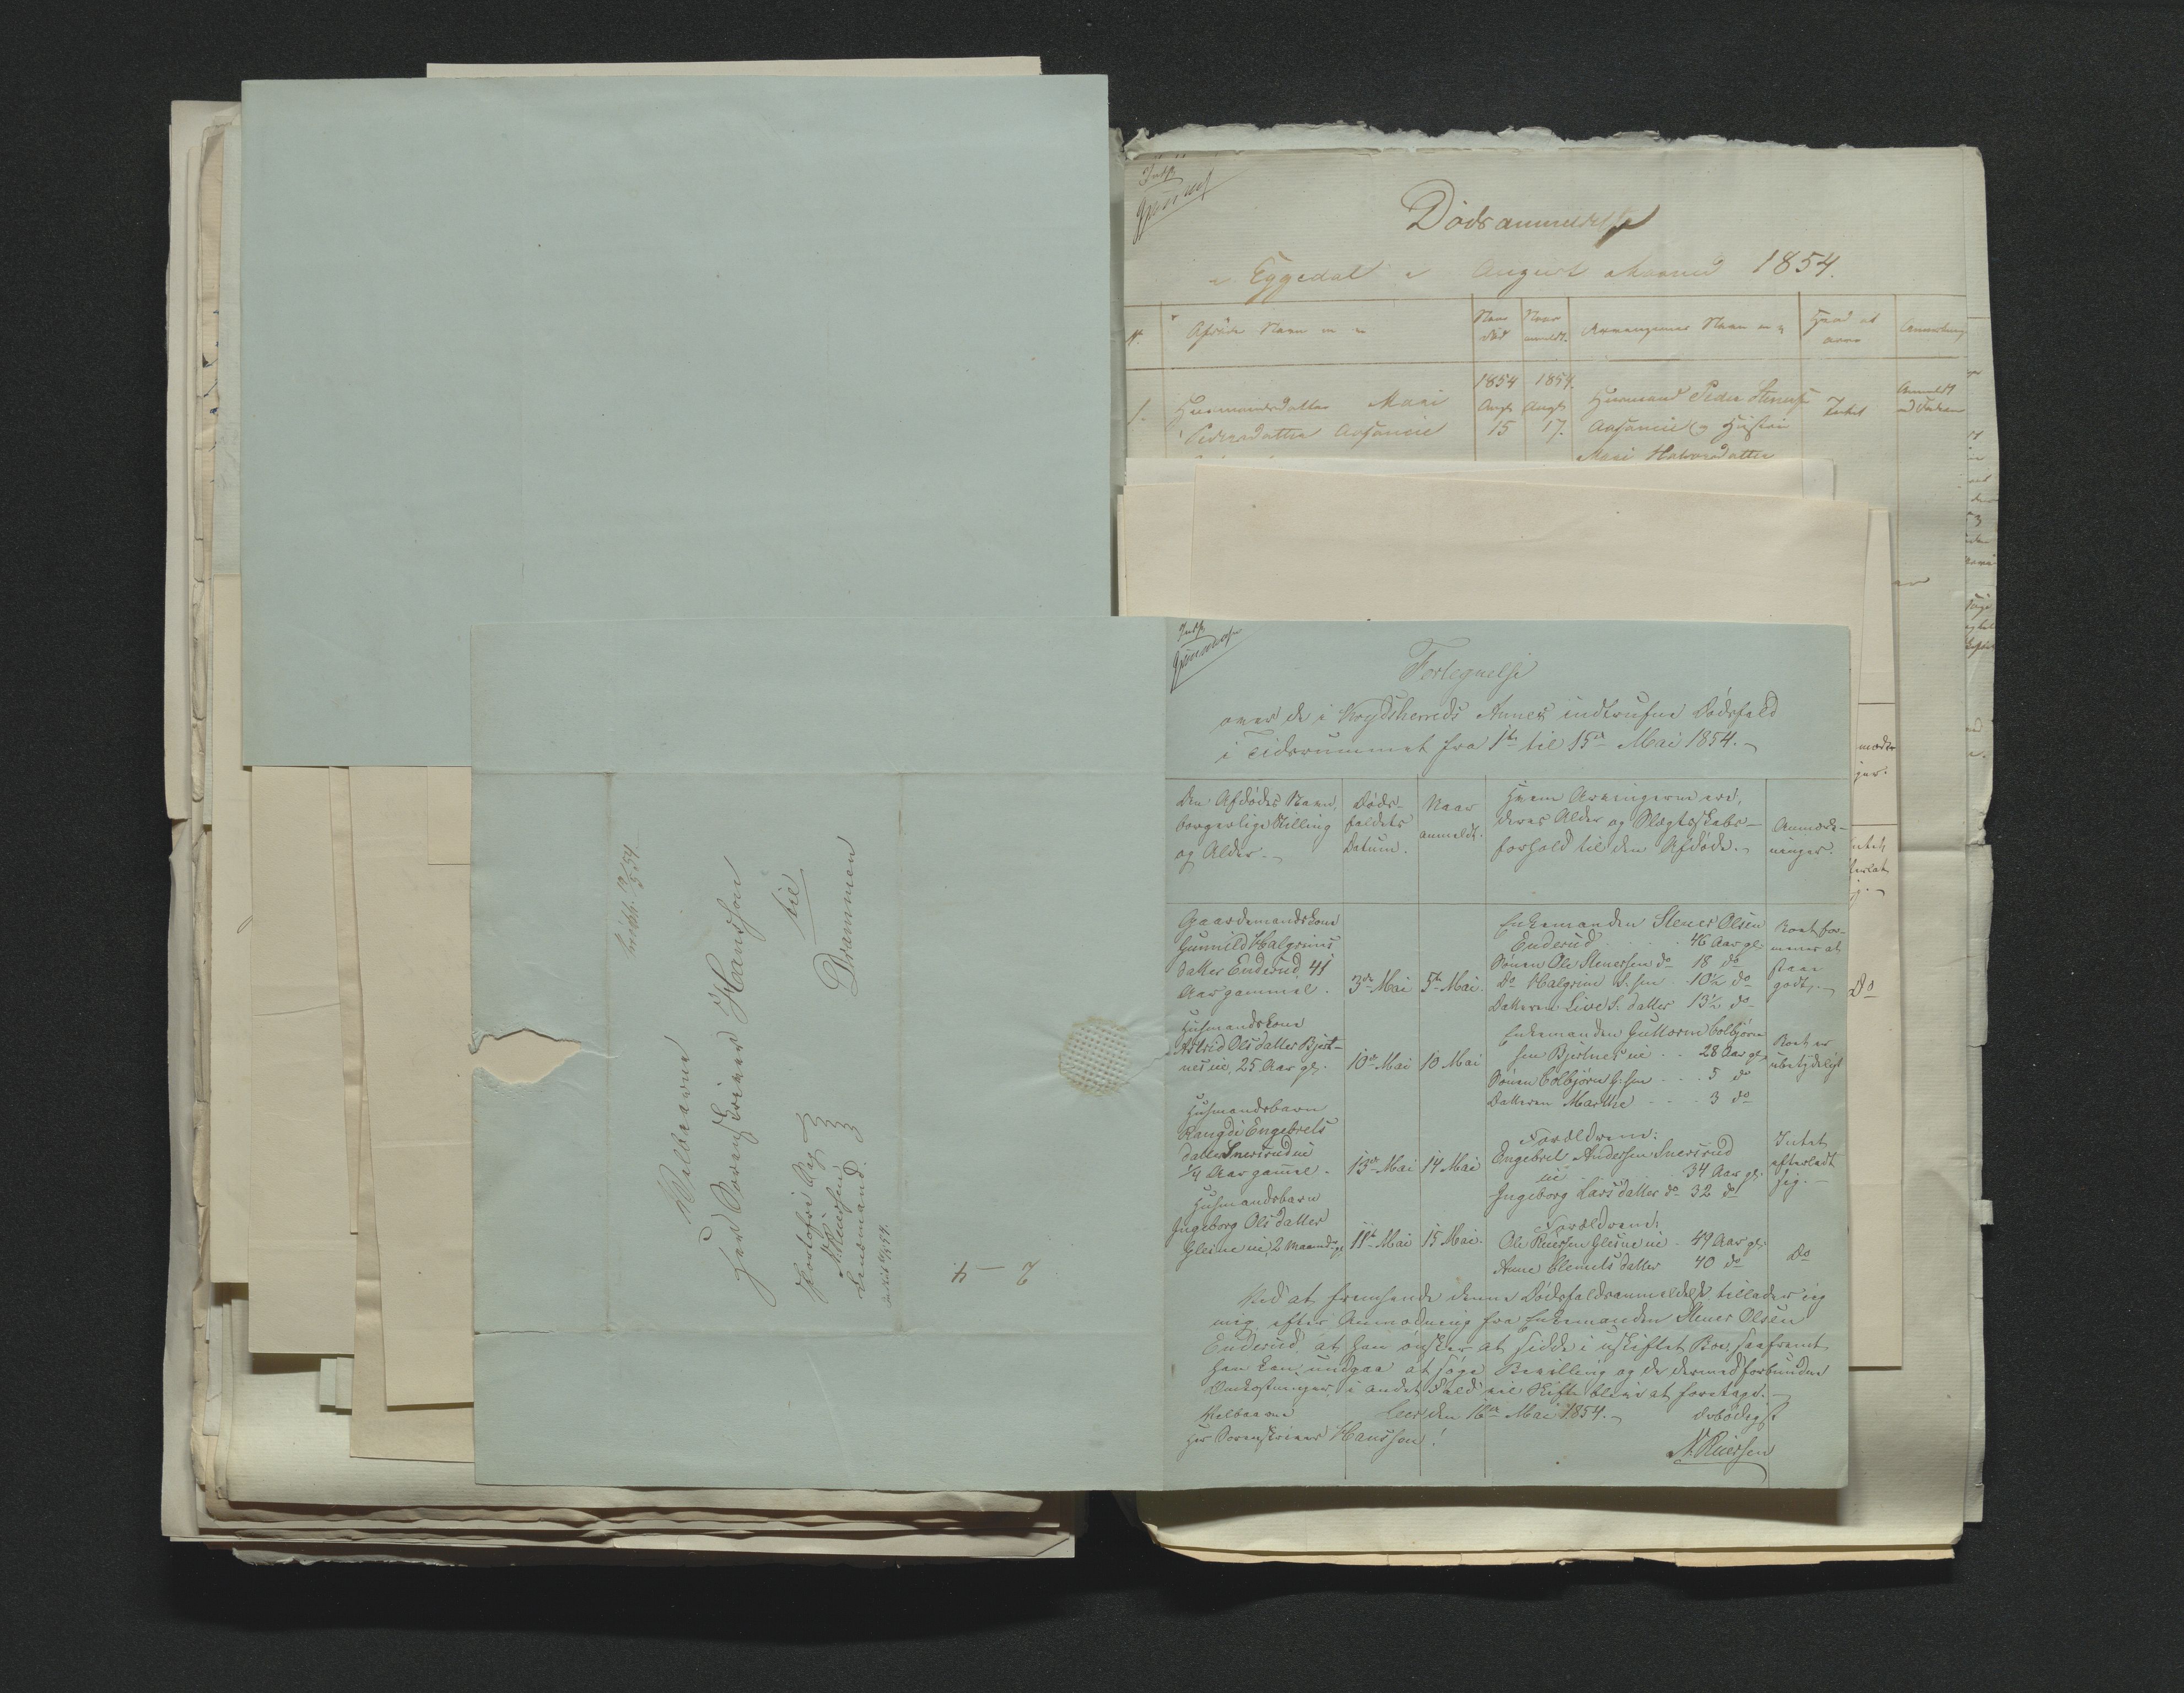 Dødsanmeldelse
i Eggedal i August Maaned 1854.
N.
Afdødes Navn m m
Naar død
Naar anmeldt.
Arvingernes Navn m m
Anmærkning
1.
Huusmandsdatter Mari
Pedersdatter
1854
Augt
15
1854.
Augt
17.
Huusmand Peder
og Hustru
Mari Halvorsdatter
Intet
Anmeldt
af Faderen
Fortegnelse
over de i Krydsherreds Annex indtrufne Dødsfald
i Tidsrummet fra 1ste til 15de Mai 1854.
Den Afdødes Navn,
borgerlige Stilling
og Alder.
Døds-
faldets
Datum.
Naar
anmeldt.
Hvem Arvingerne ere,
deres Alder og Slægtskabs-
forhold til den Afdøde.
Anmærk-
ninger.
Gaardmandskone
Gunnild Halgrims
datter Enderud, 41
Aar gammel.
3de Mai
5te Mai.
Enkemanden Stener Olsen
Enderud . . . 46 Aar gl.
Sønnen Ole Stenersen do 18 do
Do Halgrim S.sen . 10½ do
Datteren Live S. datter 13½ do
Boet for-
menes at
staae
godt.
Huusmandskone
Astrid Olsdatter Bjert-
nes eie, 25 Aar gl.
10de Mai
10 Mai
Enkemanden Guttorm Colbjørn-
sen Bjertnes eie . . 28 Aar gl.
Sønnen Colbjørn G.sen . . . 5 do
Datteren Marthe . . . 3 do
Boet er
ubetydeligt
Huusmandsbarn
Rangdi Engebrets
datter Snersrudeie
¼ Aar gammel.
13de Mai
14 Mai
Forældrene:
Engebret Andersen Snersrud
eie . . 34 Aar gl.
Ingeborg Larsdatter do 32 do
Intet
efterladt
sig.
Huusmandsbarn
Ingeborg Olsdatter
Glesne eie, 2 Maaneder gl.
11te Mai
15 Mai.
Forældrene:
Ole Reiersen Glesne eie . 49 Aar gl.
Anne Clemetsdatter 40 do
Do
Ved at fremsende denne Dødsfaldsanmeldelse tillader jeg
mig, efter Anmodning fra Enkemanden Stener Olsen
Enderud, at han ønsker at sidde i uskiftet Boe, saafremt
han kan undgaa at søge Bevilling og de dermed forbundne
Omkostninger, i andet Fald vil Skifte blive at foretage.
Velbaarne
Hr Sorenskriver Hansson!
Leer den 16de Mai 1854.
Ærbødigst
A. Reiersen
Velbaarne
Herr Sorenskriver Hansson
til
Drammen
Portofri Sag
A Reiersen
Lensmand.